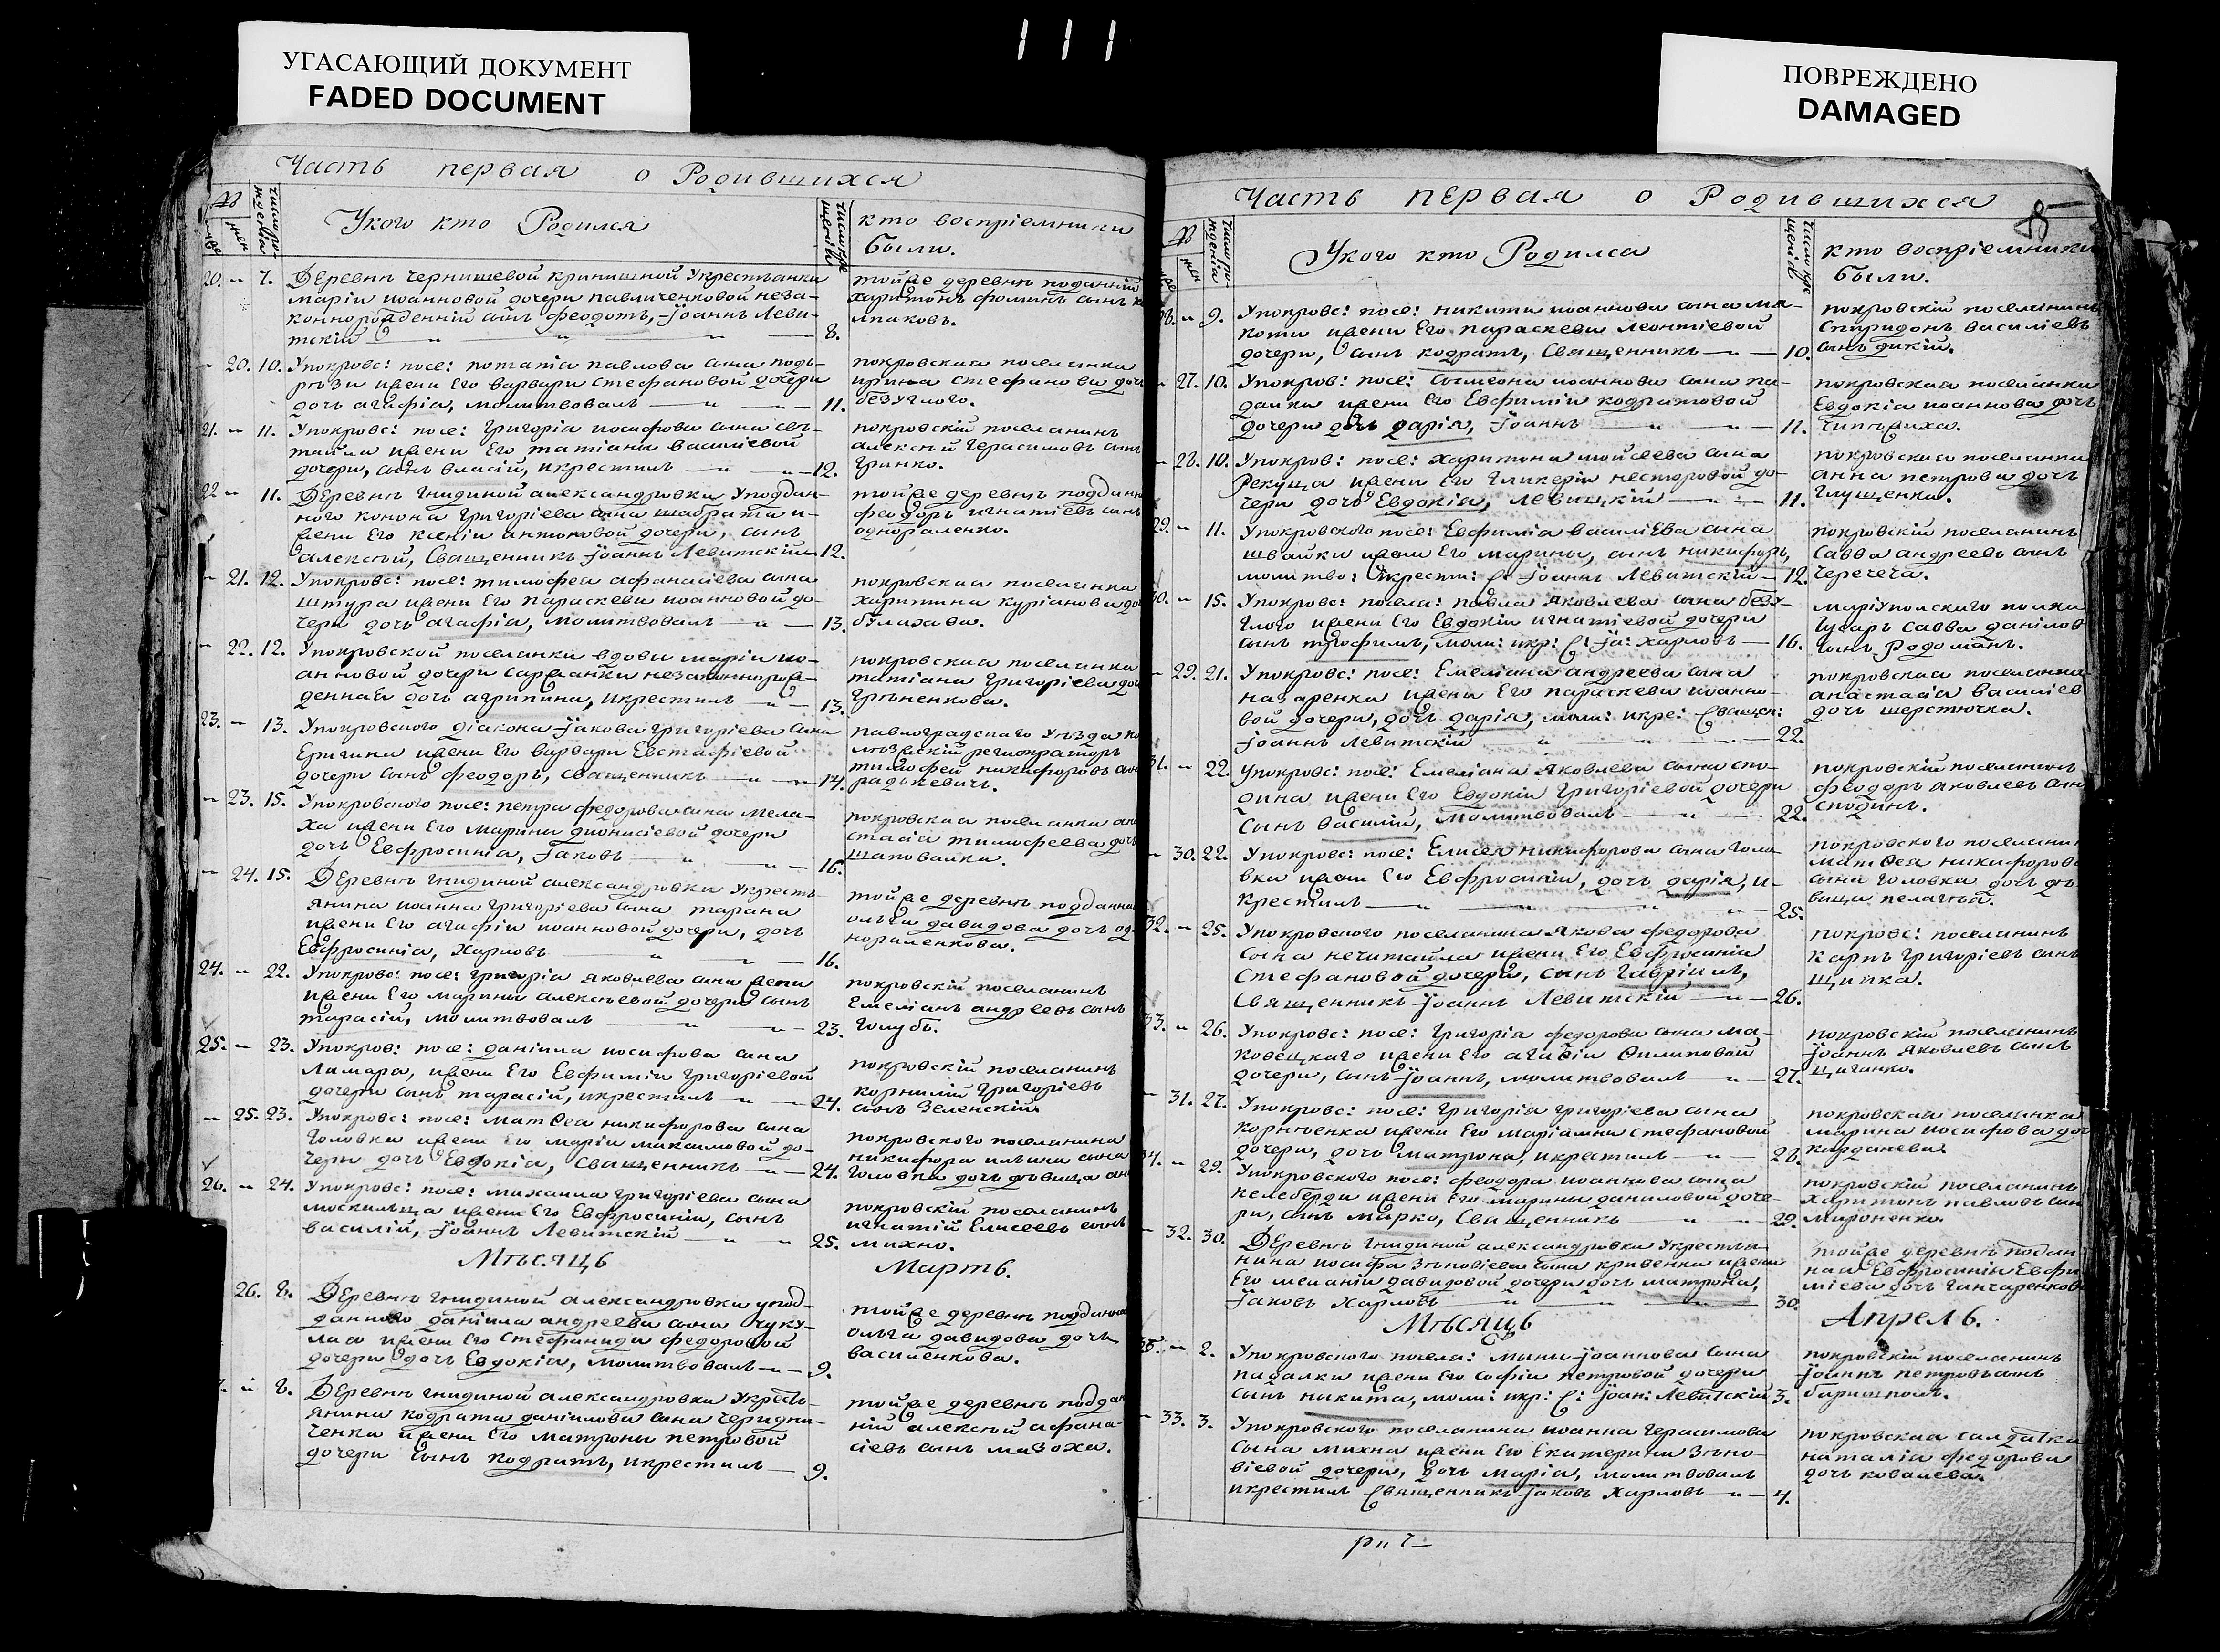 УГАСАЮЩИЙ ДОКУМЕНТ
FADED DOCUMENT
ПОВРЕЖДЕНО
DAMAGED
Часть первая о Родившихся
Укого кто Родился
кто воспріемники
были.
20. 7. Деревнѣ чернишевой кринишной Укрестьянки
маріи иоанновой дочери павличенковой неза-
коннорожденній сынъ феодотъ, Іоаннъ Леви-
тскій 8.
тойже деревнѣ подданній
харитонъ фоминъ сынъ
лпаковъ.
20. 10. Упокровс: посе: потапіа павлова сына подъ-
рѣзи жени Его варвари стефановой дочери
дочь агафіа, молитвовалъ 11.
покровскаа поселянка
ирина стефанова
безуглого.
21. 11. Упокровс: посе: григоріа иосифова сына свѣ-
тайла жени Его татіани василіевой
дочери, сынъ власій, икрестилъ 12.
покровскій поселянинъ
алексѣй герасимовъ сынъ
гринко.
22 11. Деревнѣ гнидиной александровки Уподдан-
ного конона григоріева сына шабрата
жени Его ксеніи антоновой дочери, сынъ
алексѣй, Священникъ Іоаннъ Левитскій 12.
тойже деревнѣ
феодоръ игнатіевъ сынъ
однораленко.
21. 12. Упокровс: посе: тимофеа афанасіева сына
штура жени Его параскеви иоанновой до-
чери дочь агафіа, молитвовалъ 13.
покровскаа поселянка
харитина
22. 12. Упокровской поселянки вдови маріи ио-
анновой дочери саржанки незаконнорож-
деннаа дочь агрипина, икрестилъ 13.
покровскаа поселянка
татіана григоріева
грѣненкова.
23. 13. Упокровского діакона Іакова григоріева сына
Еригина жени Его варвари Евстафіевой
дочери сынъ феодоръ, священникъ 14.
павлоградского уѣзда
регистраторъ
тимофей никифоровъ
радкевичъ.
23. 15. Упокровского посе: петра федорова сина мела-
ха жени Его марини дионисіевой дочери
дочь Евфросинія, Іаковъ 16.
покровскаа поселянка
стасіа тимофеева дочь
шаповалка.
24. 15. Деревнѣ гнидиной александровки Укресть-
янина иоанна григоріева сына тарана
жени Его агафіи иоанновой дочери, дочь
Евфросинія, Харловъ 16.
тойже деревнѣ
ольга давидова дочь
норамленкова.
24. 22. Упокровс: посе: григоріа яковлева сина
жени Его марини алексѣевой дочери сынъ
тарасій, молитвовалъ 23.
покровскій поселянинъ
Емеліанъ андреевъ сынъ
голубъ.
25. 23. Упокров: посе: даніила иосифова сина
Ламара, жени Его Евфиміи григоріевой
дочери сынъ тарасій, икрестилъ 24.
покровскій поселянинъ
корнилій григоріевъ
сынъ Зеленскій.
25. 23. Упокровс: посе: матѳеа никифорова сина
головки жени Его маріи максимовой до-
чери дочь Евдокіа, священникъ 24.
покровского поселянина
никифора ильина сына
головка дочь дѣвица
26. 24. Упокровс: посе: михаила григоріева сына
москальца жени Его Евфросиніи, сынъ
василій, Іоаннъ Левитскій 25.
покровскій поселянинъ
игнатій Елисеевъ сынъ
михно.
Мѣсяцъ Мартъ.
26. 8. Деревнѣ гнидиной александровки упод-
данного даніила андреева сына чуку-
лиа жени Его стефаниди федоровой
дочери дочь Евдокіа, молитвовалъ 9.
тойже деревнѣ
ольга давидова дочь
василенкова.
8. Деревнѣ гнидиной александровки Укресть-
янина кодрата даніилова сина чередни-
ченка жени Его матрони петровой
дочери сынъ кодратъ, икрестилъ 9.
тойже деревнѣ
ній алексѣй афана-
сіевъ сынъ мазоха.
Часть первая о Родившихся
Укого кто Родился
кто воспріемники
были.
9. Упокровс: посе: никити иоаннова сына ма-
коти жени Его параскеви леонтіевой
дочери, сынъ кодратъ, Священникъ 10.
покровскій поселянинъ
спиридонъ василіевъ
сынъ дикій.
27. 10. Упокров: посе: сѵмеона иоаннова сына па-
далки жени Его Евфиміи кодратовой
дочери дочь дарія, Іоаннъ 11.
покровскаа поселянка
Евдокіа иоаннова дочь
28. 10. Упокров: посе: харитона мойсеева сина
рекуща жени Его гликеріи несторовой до-
чери дочь Евдокіа, Левицкій 11.
покровскаа поселянка
анна петрова дочь
глущенка.
29. 11. Упокровского посе: Евфиміа василіева сына
швайки жени Его марины, сынъ никифоръ,
молитво: икрести: с: Іоаннъ Левитскій 12.
покровскій поселянинъ
савва андреевъ сынъ
черечеча.
30. 15. Упокровс: посела: павла яковлева сына безу-
глого жени Его Евдокіи игнатіевой дочери
сынъ трофимъ, моли: икр: с: Іа: харловъ 16.
маріупольского полка
гусаръ савва данілов
сынъ родоманъ.
29. 21. Упокровс: посе: Емеліана андреева сына
назаренка жени Его параскеви иоанно-
вой дочери, дочь дарія, моли: икре: священ:
Іоаннъ Левитскій 22.
покровскаа поселянка
анастасіа василіев
дочь шерстючка.
31. 22. Упокровс: посе: Емеліана яковлева сына спо-
дина жени Его Евдокіи григоріевой дочери
сынъ василій, молитвовалъ 22.
покровскій поселянинъ
феодоръ яковлевъ сын
сподинъ.
30. 22. Упокровс: посе: Елисея никифорова сына голо-
вки жени Его Евфросиніи, дочь дарія, и-
крестилъ 25.
покровского поселянин
матѳея никифорова
сына головка дочь дѣ-
вица пелагѣа.
32. 25. Упокровского поселянина якова федорова
сына нечитайла жени Его Евфросиніи
Стефановой дочери, сынъ гавріилъ,
Священникъ Іоаннъ Левитскій 26.
покровс: поселянинъ
карпъ григоріевъ сынъ
щипка.
33. 26. Упокровс: посе: григорія федорова сына ма-
ковецкаго жени Его агафіи Филиповой
дочери, сынъ Іоаннъ, молитвовалъ 27.
покровскій поселянинъ
Іоаннъ яковлевъ сынъ
циганко.
31. 27. Упокровс: посе: григорія григоріева сына
корнѣенка жени Его маріамни стефановой
дочери, дочь матрона, икрестилъ 28.
покровскаа поселянка
марина иосифова доч
кардашева.
34. 29. Упокровского посе: феодора иоаннова сына
келеберди жени Его марины даниловой доче-
ри, сынъ марко, Священникъ 29.
покровскій поселянинъ
харитонъ павловъ сын
мироненко.
32. 30. Деревнѣ гнидиной александровки Укрестья-
нина иосифа зѣновіева сына кривенка жени
Его меланіи давидовой дочери дочь матрона,
Іаковъ Харловъ 30.
тойже деревнѣ поддан
наа Евфросинія Евфи
міева дочь ганчаренков
Мѣсяцъ Апрель.
35. 2. Упокровского посела: мины Іоаннова сына
падалки жени Его Софіи петровой дочери
сынъ никита, моли: икр: с: Іоан: Левитскій 3.
покровскій поселянинъ
Іоаннъ петровъ сынъ
баришполь.
33. 3. Упокровского поселянина иоанна герасимова
сына михна жени Его Екатерини зѣно-
віевой дочери, дочь маріа, молитвовалъ
икрестилъ священникъ Іаковъ Харловъ 4.
покровскаа салдатка
наталіа федорова
дочь ковалева.